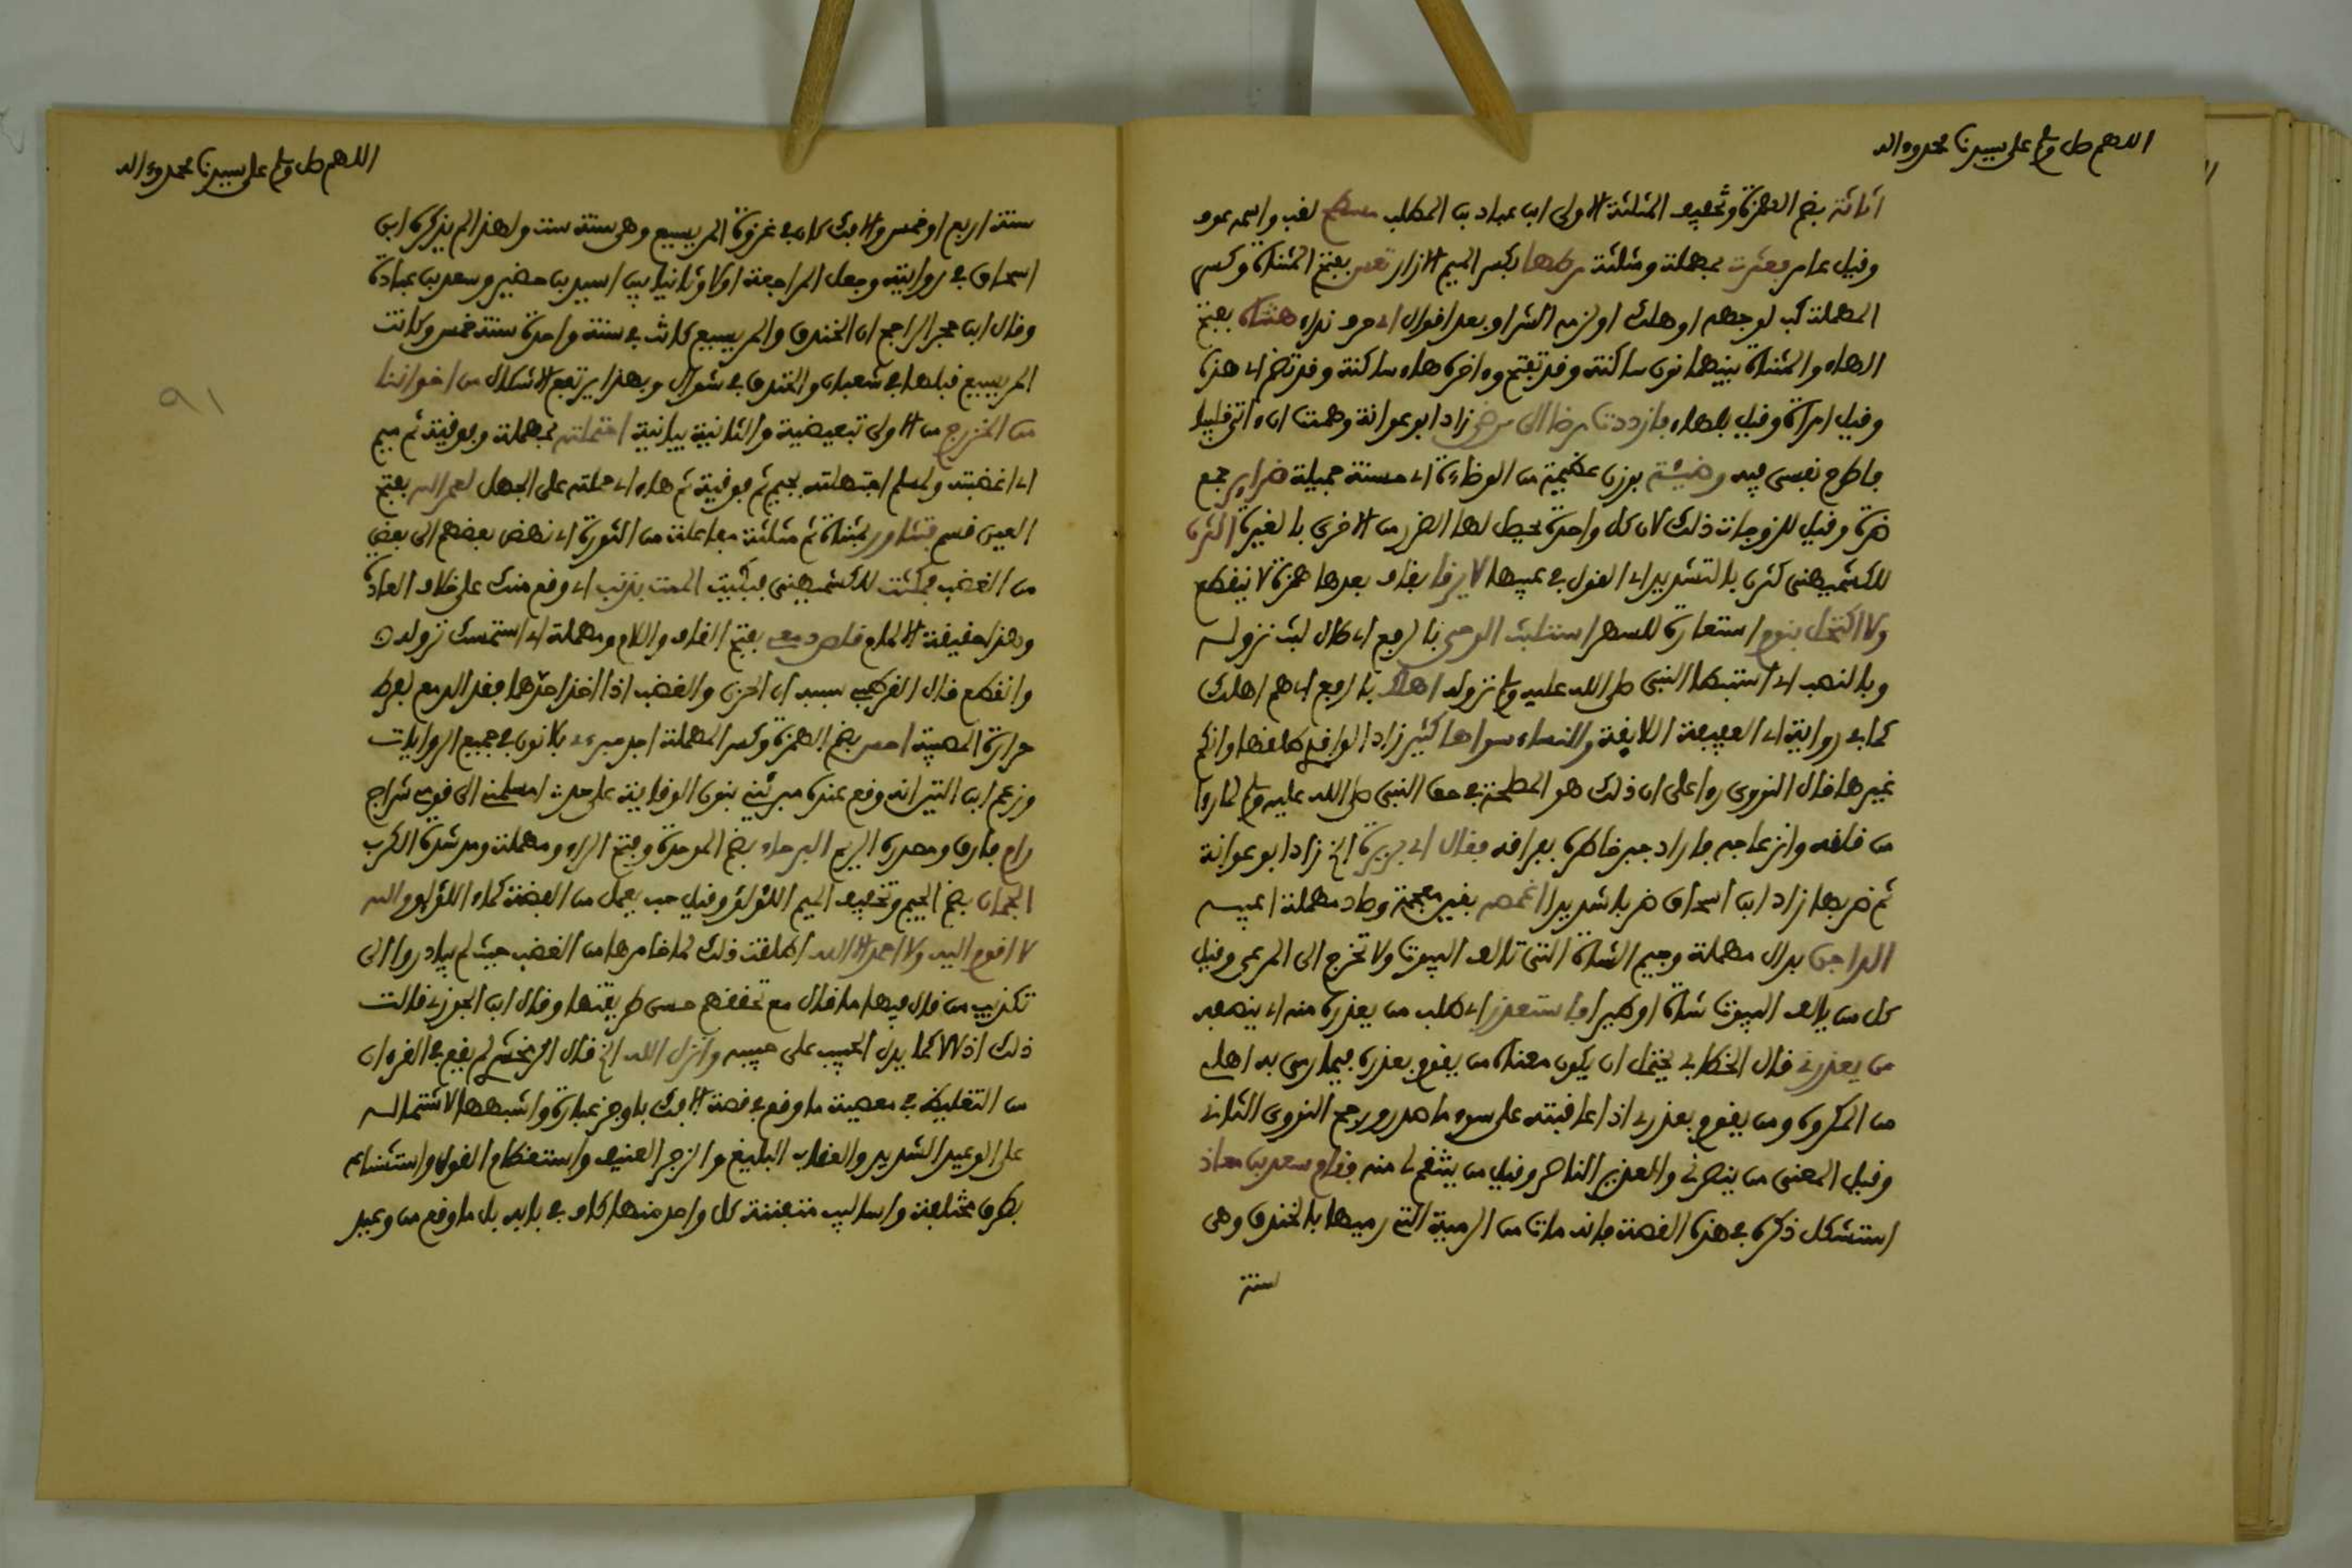 اللهم صل وسلم على سيدنا محمد وءاله
اثاثة بضم الهمزة وتخفيف المثلثة الاولى ابن عباد بن المطلب مسطح لقب واسمه عوف
وقيل عامر فعثرت بمهملة ومثلثة مرطها بكسر الميم الازار تعس بفتح المثناة وكسر
المهملة كب لوجهه او هلك او لزمه الشر او بعد اقوال اي حرف نداء هنتاه بفتح
الهاء والمثناة بينهما نون ساكنة وقد تفتح وءاخره هاء ساكنة وقد تضم اي هذه
وقيل امرأة وقيل بلهاء فازددت مرضا الى مرضي زاد ابو عوانة وهمت ان ءاتي قليبا
فاطرح نفسي فيه وضيئة بوزن عظيمة من الوضاءة اي حسنة جميلة ضراير جمع
ضرة وقيل للزوجات ذلك لان كل واحدة يحصل لها الضرر من الاخرى بالغيرة اكثرن
للكشميهني كثرن بالتشديد اي القول في عيبها لا يرقا بقاف بعدها همزة لا ينقطع
ولا اكتحل بنوم استعارة للسهر استلبث الوحي بالرفع اي طال لبث نزوله
وبالنصب اي استبطا النبي صلى الله عليه وسلم نزوله اهلك بالرفع اي هم اهلك
كما في رواية اي العفيفة اللايقة والنساء سواها كثير زاد الواقدي طلقها وانكح
غيرها قال النووي رءا علي ان ذلك هو المصلحة في حق النبي صلى الله عليه وسلم لما رءا
من قلقه وانزعاجه فاراد جبر خاطره بفراقه فقال اي بريرة الخ زاد ابو عوانة
ثم ضربها زاد ابن اسحاق ضربا شديدا اغمصه بغين معجمة وصاد مهملة اعيبه
الداجن بدال مهملة وجيم الشاة التي تالف البيوت ولا تخرج الى المرعى وقيل
كل من يالف البيوت شاة او طيرا فاستعذر اي طلب من يعذره منه اي ينصفه
من يعذرني قال الخطابي يحتمل ان يكون معناه من يقوم بعذره فيما رمى به اهلي
من المكروه ومن يقوم بعذري اذا عاقبته على سوء ما صدر ورجح النووي الثاني
وقيل المعنى من ينصرني والعذير الناصر وقيل من ينتقم لي منه فقام سعد بن معاذ
استشكل ذكره في هذه القصة فانه مات من الرمية التي رميها بالخندق وهي
سنة
اللهم صل وسلم على سيدنا محمد وءاله
سنة اربع او خمس والافك كان في غزوة المريسيع وهي سنة ست ولهذا لم يذكره ابن
اسحاق في روايته وجعل المراجعة اولا وثانيا بين اسيد بن حضير وسعد بن عبادة
وقال ابن حجر الراجح ان الخندق والمريسيع كانت في سنة واحدة سنة خمس وكانت
المريسيع قبلها في شعبان والخندق في شوال وبهذا يرتفع الاشكال من اخواننا
من الخزرج من الاولى تبعيضية والثانية بيانية احتملته بمهملة وفوقية ثم ميم
اي اغضبته ولمسلم اجتهلته بجيم ثم فوقية ثم هاء اي حملته على الجهل لعمر الله بفتح
العين قسم فتثاور بمثناة ثم مثلثة مفاعلة من الثورة اي نهض بعضهم الى بعض
من الغضب فمكثت للكشميهني فبكيت الممت بذنب اي وقع منك على خلاف العادة
وهذا حقيقة الالمام قلص دمعي بفتح القاف واللام ومهملة اي استمسك نزوله
وانقطع قال القرطبي سببه ان الحزن والغضب اذا اخذ احدهما فقد الدمع لفرط
حرارة المصيبة احس بضم الهمزة وكسر المهملة اجد مبرءي بلا نون في جميع الروايات
وزعم ابن التين انه وقع عنده مبرئني بنون الوقاية على حد امسلمني الى قومي شراح
رام فارق ومصدره الريم البرحاء بضم الموحدة وفتح الراء ومهملة ومد شدة الكرب
الجمان بضم الجيم وتخفيف الميم اللؤلؤ وقيل حب يعمل من الفضة كماء اللؤلؤ والله
لا اقوم اليه ولا احمد الا الله اطلقت ذلك لما خامرها من الغضب حيث لم يبادروا الى
تكذيب من قال فيها ما قال مع تحققهم حسن طريقتها وقال ابن الجوزي قالت
ذلك اذلالا كما يدل الحبيب على حبيبه وانزل الله الخ قال الزمخشري لم يقع في القرءان
من التغليظ في معصية ما وقع في قصة الافك باوجز عبارة واشبعها لاشتماله
على الوعيد الشديد والعقاب البليغ والزجر العنيف واستعظام القول واستشناعه
بطرق مختلفة واساليب متقنة كل واحد منها كاف في بابه بل ما وقع من وعيد
٩١